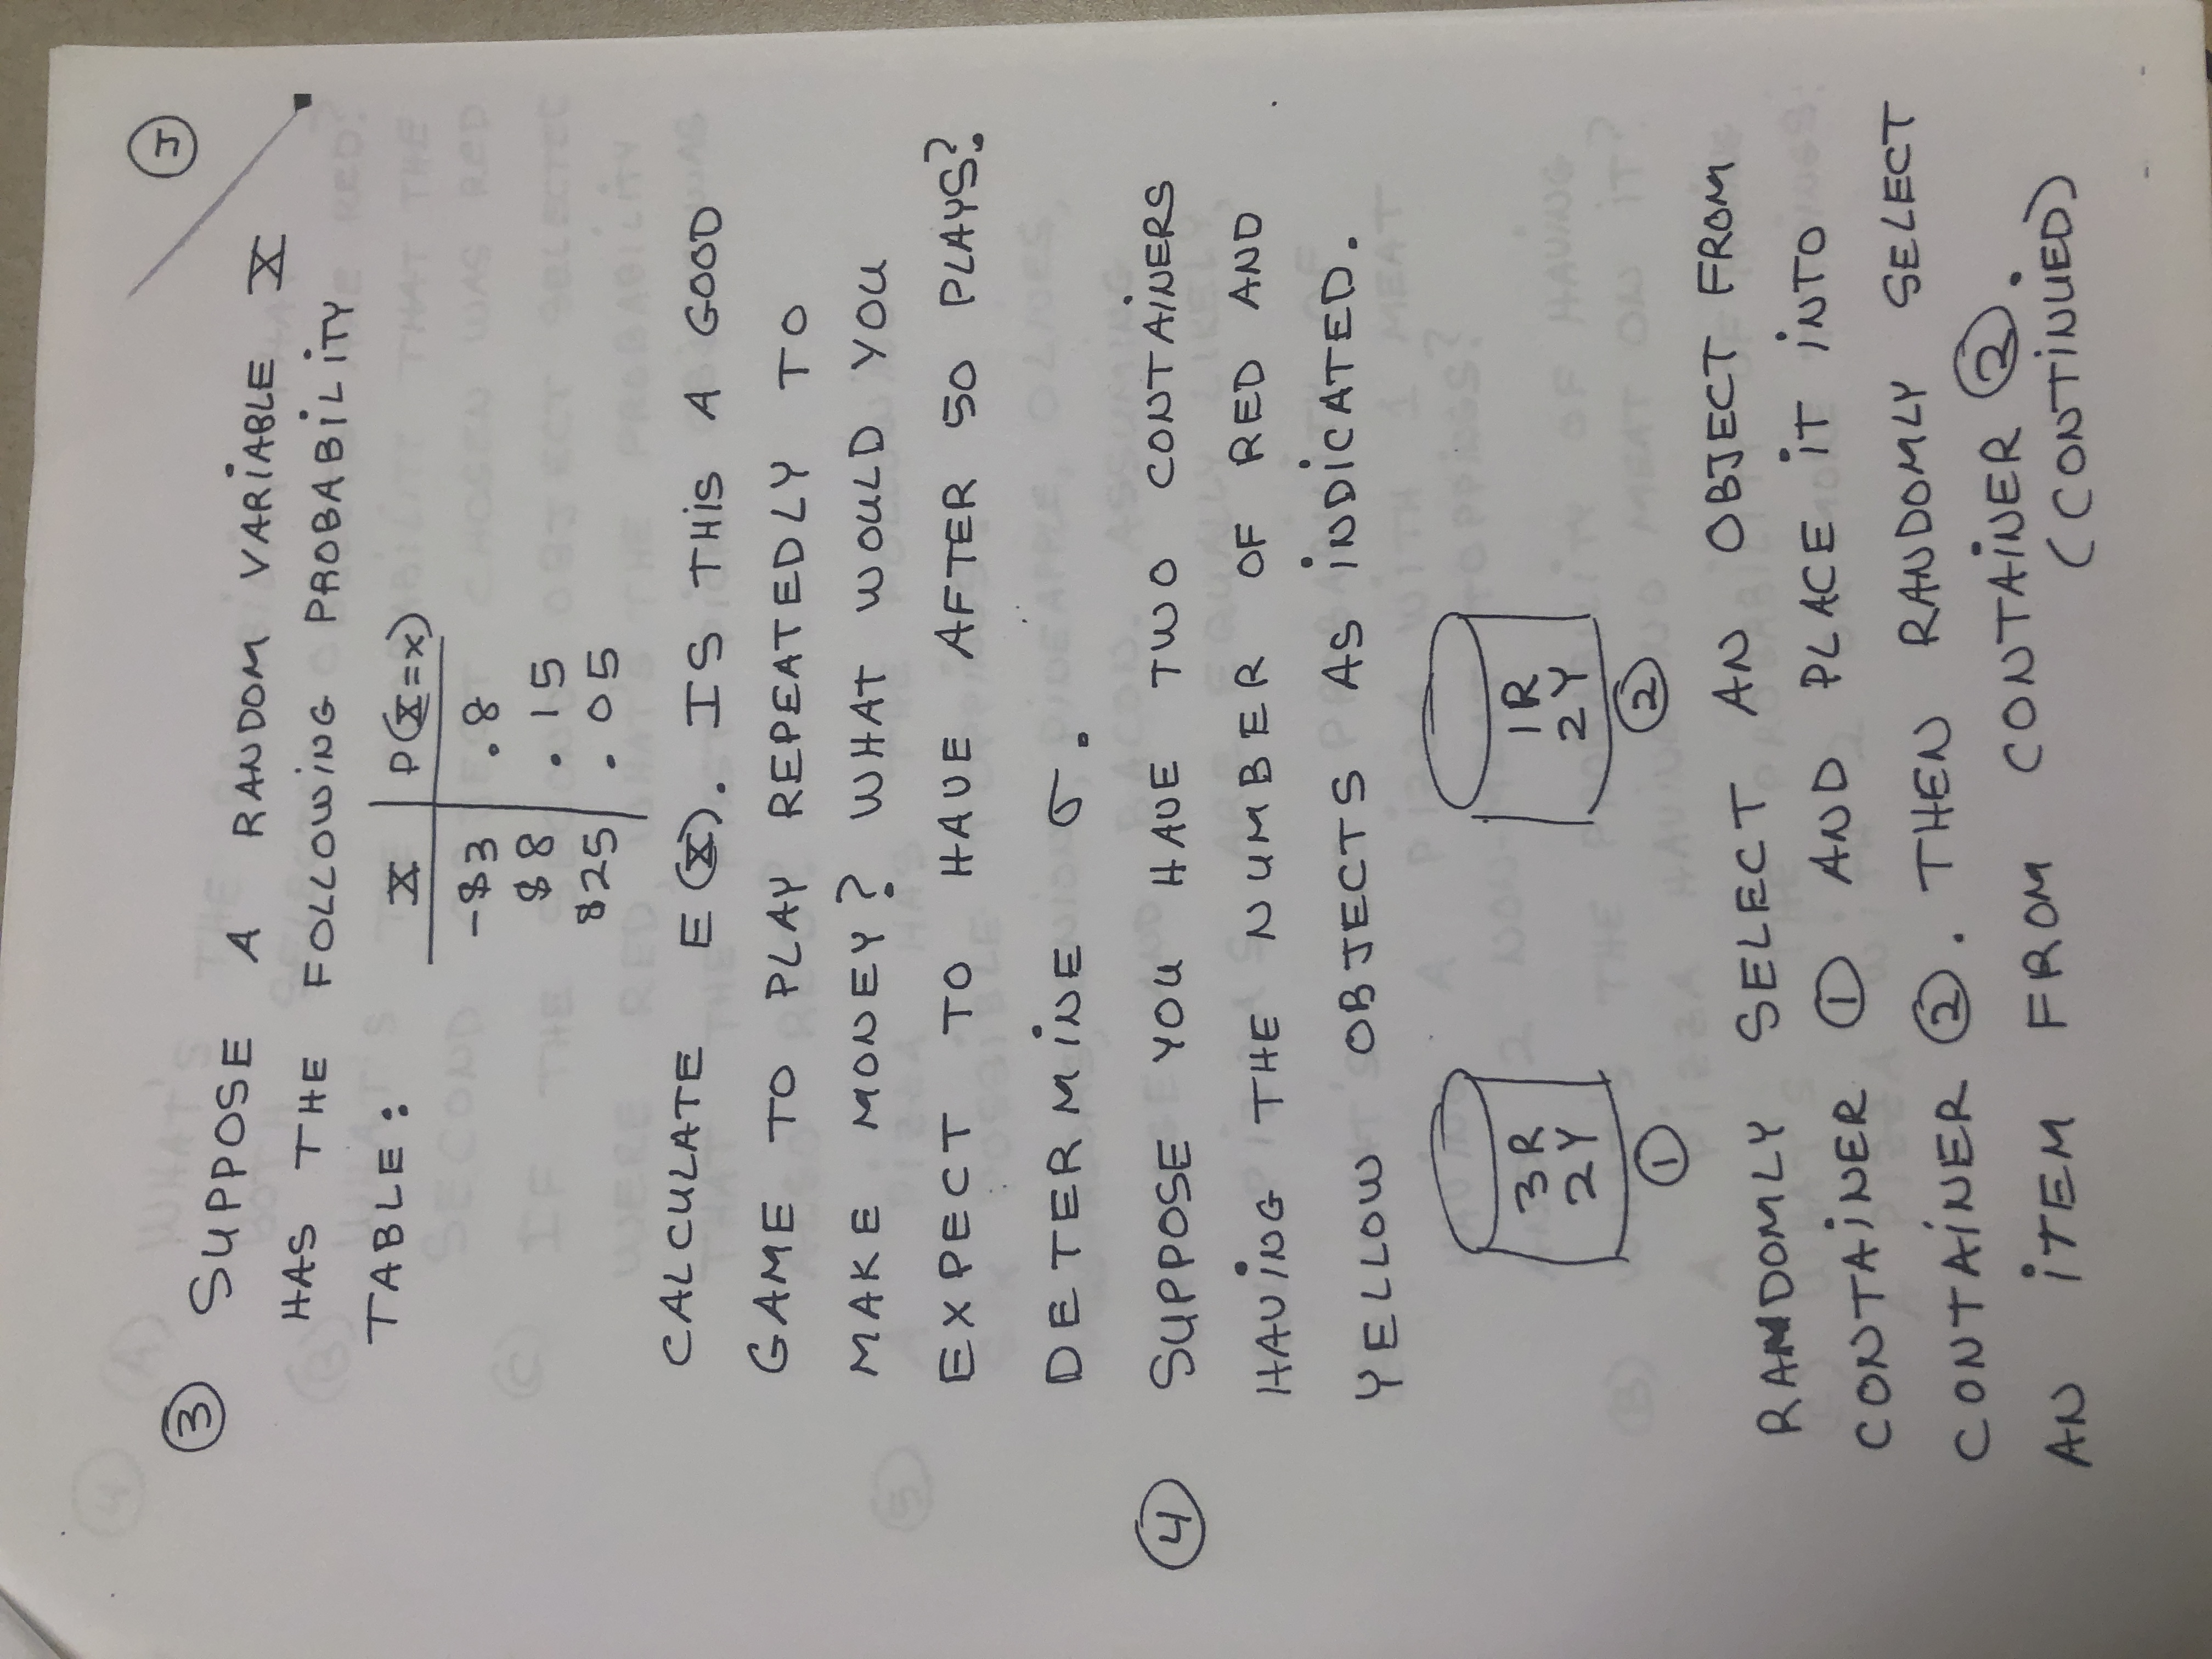 J
③ SUPPOSE A RANDOM VARIABLE X
HAS THE FOLLOWING PROBABILITY
TABLE:
X P(X=x)
-$3 .8
$8 .15
$25 .05
CALCULATE E(X). IS THIS A GOOD
GAME TO PLAY REPEATEDLY TO
MAKE MONEY? WHAT WOULD YOU
EXPECT TO HAVE AFTER 50 PLAYS?
DETERMINE σ.
④ SUPPOSE YOU HAVE TWO CONTAINERS
HAVING THE NUMBER OF RED AND
YELLOW OBJECTS AS INDICATED.
3R 1R
2Y 2Y
① ②
RANDOMLY SELECT AN OBJECT FROM
CONTAINER ① AND PLACE IT INTO
CONTAINER ②. THEN RANDOMLY SELECT
AN ITEM FROM CONTAINER ②.
(CONTINUED)